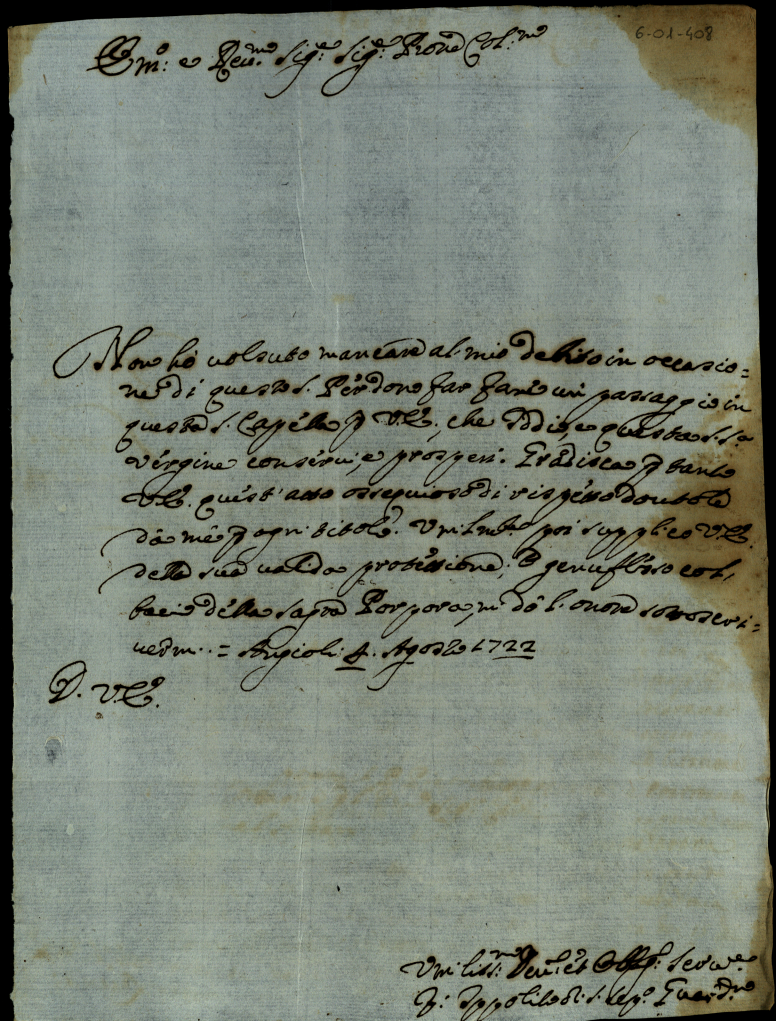 6-01-408
Em:º e Rev:mo Sig:e Sig:e Prone Col:mo
Non hò volsuto mancare al mio debito in occasio=
ne di questo S. Perdono far fare un passaggio in
questa S. Capella p V.E., che Iddio, e questa S.S.a
Vergine conservi, e prosperi. Gradisca p tanto
V.E. quest'atto ossequioso di rispetto dovutole
da me p ogni titolo. Umilmte poi supplico V.E.
della sua valida protettione, e genuflesso col,
bacio della sagra Porpora, mi dò l'onore sottoscri=
vermi. = Angioli 4. Agosto 1722
D. V.E.
Umiliss:mo Dev:et Obblig: Servre
F: Ippolito di S. Guardno